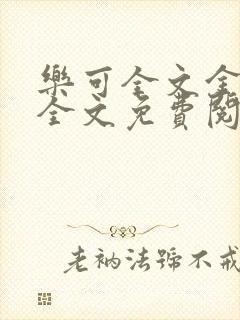 樂可全文全
全文免費閱
老衲法號不戒